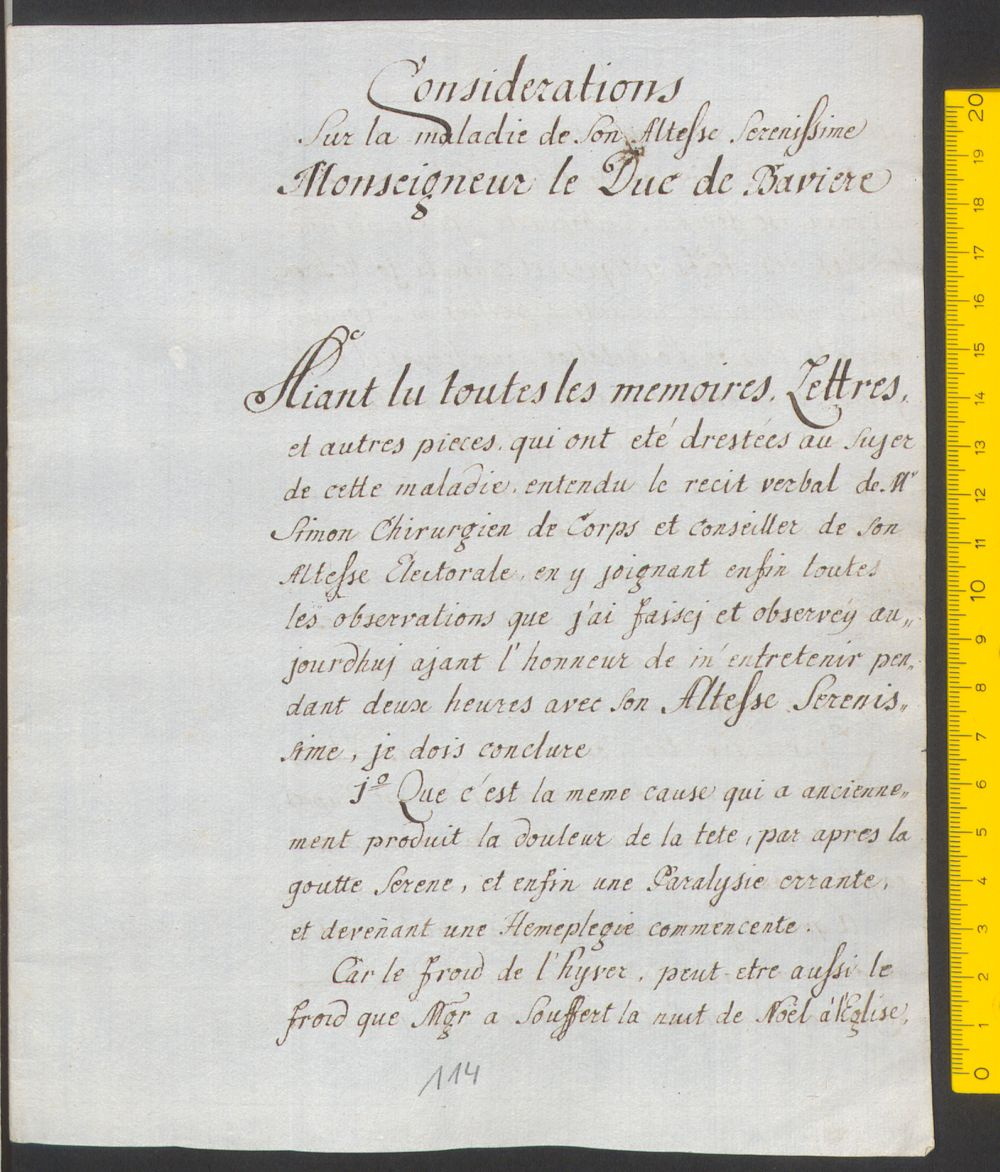 Considerations
Sur la maladie de Son Altesse Serenissime
Monseigneur le Duc de Baviere
Aiant lu toutes les memoires, Lettres,
et autres pieces, qui ont eté drestées au Sujet
de cette maladie, entendu le recit verbal de Mr
Simon Chirurgien de Corps et Conseiller de Son
Altesse Electorale, en y joignant enfin toutes
les observations que j'ai faissej et observéy au„
jourdhuj ajant l'honneur de m'entretenir pen„
dant deux heures avec Son Altesse Serenis„
sime, je dois conclure
1º Que c'est la meme cause qui a ancienne„
ment produit la douleur de la tete, par apres la
goutte Serene, et enfin une Paralysie errante,
et devenant une Hemeplegie commencente.
Car le froid de l'hyver, peut etre aussi le
froid que Mgr a Souffert la nuit de Noël á l'Eglise,
114
20
19
18
17
16
15
14
13
12
11
10
9
8
7
6
5
4
3
2
1
0